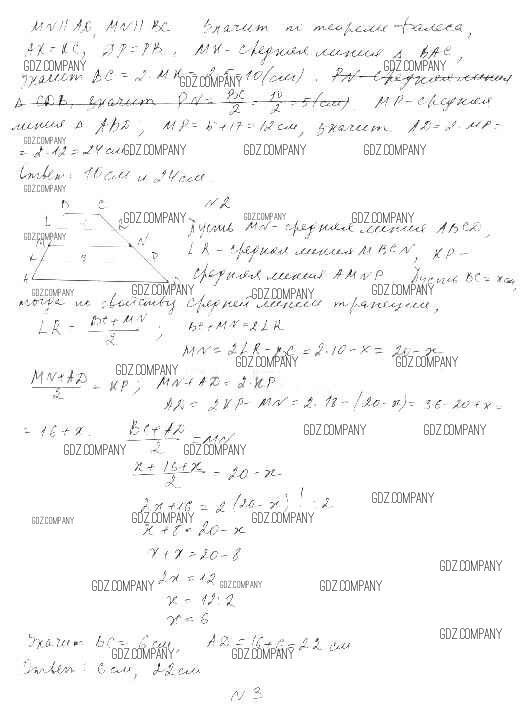 MN || AD, MN || BC. Значит по теореме Фалеса,
AK = KC, DP = PB. MK - средняя линия Δ BAC,
Значит BC = 2·MK = 2·5=10(см). PN - средняя линия
Δ CDB, значит PN = BC/2 = 10/2 = 5(см) MP - средняя
линия Δ ABD, MP = 5+7=12см, значит AD = 2·MP =
= 2·12 = 24см
Ответ: 10см и 24см.
N2
Пусть MN - средняя линия ABCD,
LR - средняя линия MBCN, KP -
средняя линия AMNP Пусть BC = x см,
тогда по свойству средней линии трапеции,
LR = BC+MN/2 ; BC+MN=2LR
MN = 2LR - BC = 2·10 - x = 20 - x
MN+AD/2 = KP; MN+AD = 2·KP
AD = 2KP - MN = 2·18 - (20-x) = 36-20+x =
= 16+x. BC+AD/2 = MN
x+16+x/2 = 20-x
2x+16 = 2(20-x) ·2
x+8=20-x
x+x=20-8
2x=12
x = 12:2
x=6
Значит BC = 6 см, AD = 16+6=22 см
Ответ: 6см, 22см
N 3
GDZ.COMPANY